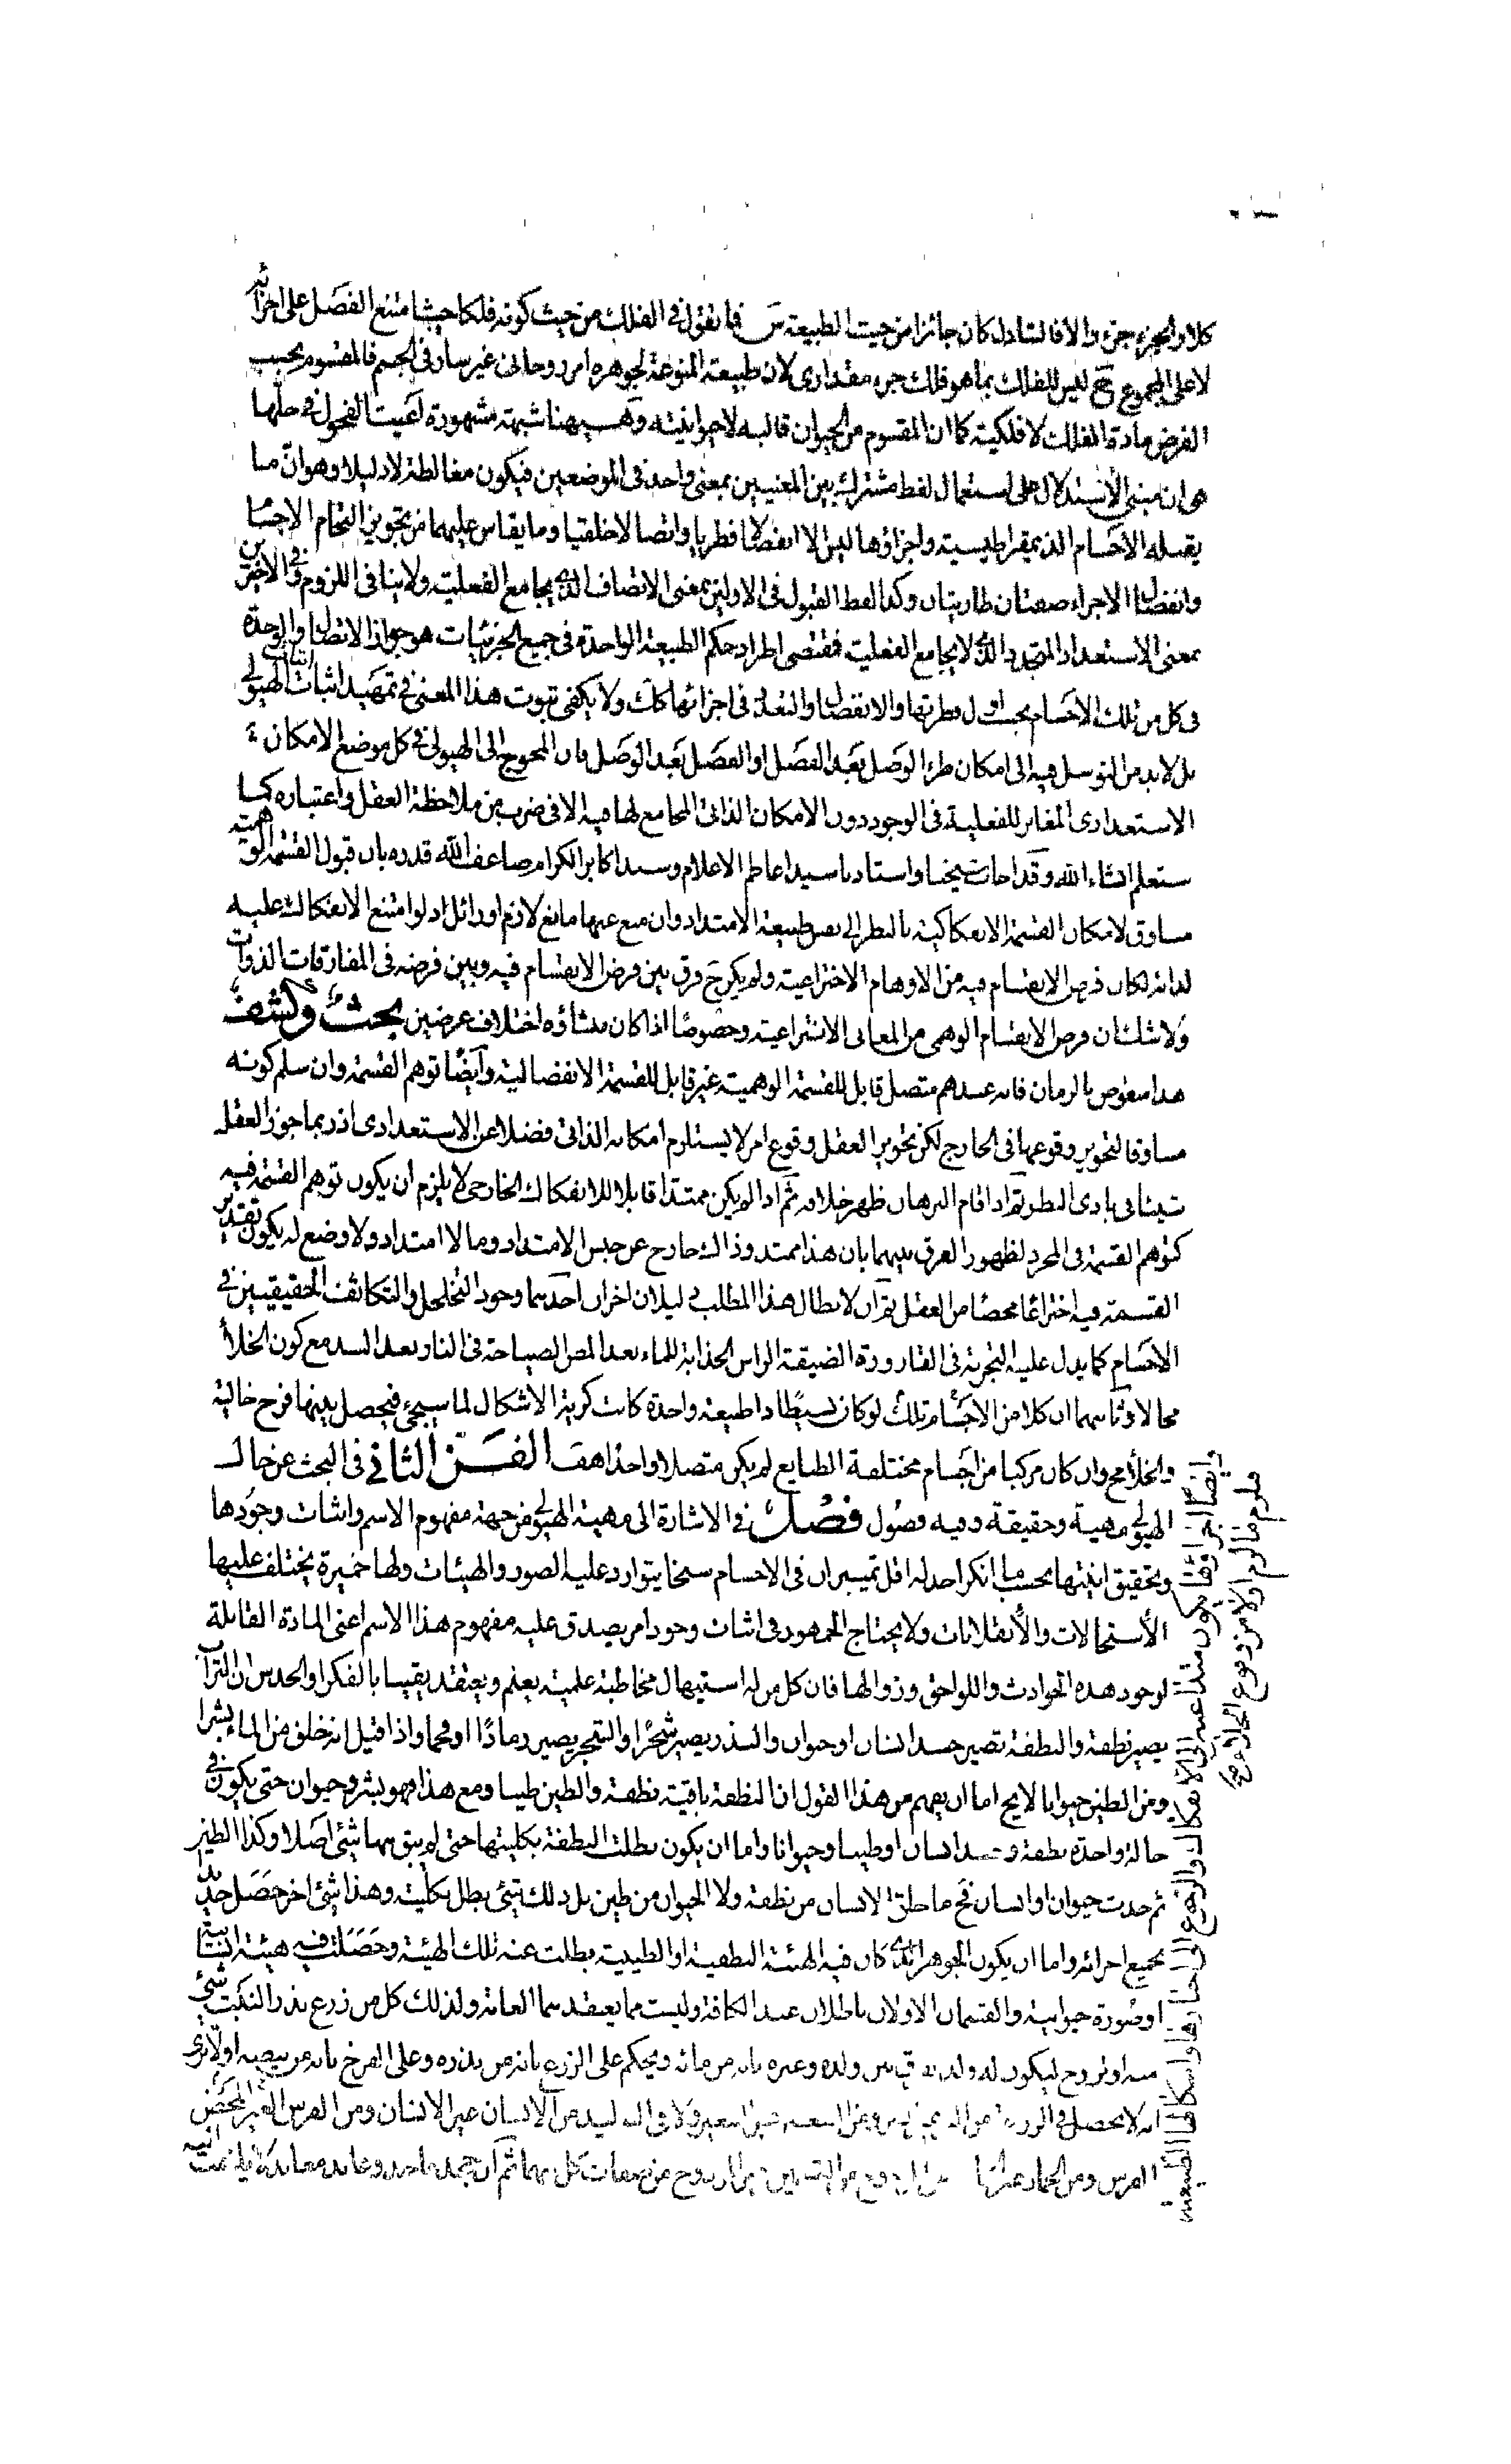 كلا والجزء جزء والافالتبادل كان جائزا من حيث الطبيعة فما تقول فى الفلك من حيث كونه فلكا حيث امتنع الفصل على اجزائه
لا على المجموع ليس للفلك بما هو فلك جزء مقدارى لان طبيعته المنوعة لجوهره امر روحانى غير سار فى الجسم فالمقسوم بحسب
الفرض مادة الفلك لا فلكيته كما ان المقسوم من الحيوان قالبه لا حيوانيته وههنا شبهة مشهورة اعيت الفحول فى حلها
هى ان مبنى الاستدلال على استعمال لفظ مشترك بين المعنيين بمعنى واحد فى الموضعين فيكون مغالطة لا دليلا وهو ان ما
يقبله الاجسام الذيمقراطيسية واجزاؤها ليس الا انفصالا فطريا واتصالا خلقيا وما يقاس عليهما من تجويز التحام الاجسام
وانفصال الاجزاء صفتان طاريتان وكذا لفظ القبول فى الاولين بمعنى الاتصاف الذى يجامع الفعلية ولا ينافى اللزوم وفى الاخيرين
بمعنى الاستعداد المتجدد الذى لا يجامع الفعلية فمقتضى اطراد حكم الطبيعة الواحدة فى جميع الجزئيات هو جواز الاتصال والوحدة
فى كل من تلك الاجسام بحسب اول فطرتها والانفصال والتعدد فى اجزائها كك ولا يكفى ثبوت هذا المعنى فى تمهيد اثبات الهيولى
بل لا بد من التوسل فيه الى امكان طرا الوصل بعد الفصل او الفصل بعد الوصل فان المحوج الى الهيولى فى كل موضع الامكان
الاستعدادى المغاير للفعلية فى الوجود دون الامكان الذاتى المجامع لها فيه الا فى ضرب من ملاحظة العقل واعتباره كما
ستعلم انشاء الله وقد اجاب شيخنا واستادنا سيد اعاظم الاعلام وسند اكابر الكرام ضاعف الله قدره بان قبول القسمة الوهمية
مساوق لامكان القسمة الانفكاكية بالنظر الى نفس طبيعة الامتداد وان منع عنها مانع لازم او زائل اذ لو امتنع الانفكاك عليه
لذاته لكان فرض الانقسام فيه من الاوهام الاختراعية ولم يكن ح فرق بين فرض الانقسام فيه وبين فرضه فى المفارقات الذوات
ولا شك ان فرض الانقسام الوهمى من المعانى الانتزاعية وخصوصا اذا كان منشاؤه اختلاف عرضين بحث وكشف
هذا منقوض بالزمان فانه عندهم متصل قابل للقسمة الوهمية غير قابل للقسمة الانفصالية وايضا توهم القسمة وان سلم كونه
مساوقا لتجويز وقوعها فى الخارج لكن تجويز العقل وقوع امر لا يستلزم امكانه الذاتى فضلا عن الاستعدادى اذ ربما جوز العقل
شيئا فى بادى النظر ثم اذا قام البرهان ظهر خلافه ثم اذا لم يكن ممتد قابلا للانفكاك الخارجى لا يلزم ان يكون توهم القسمة فيه
كتوهم القسمة فى المجرد لظهور الفرق بينهما بان هذا ممتد وذاك خارج عن جنس الامتداد وما لا امتداد ولا وضع له يكون تقدير
القسمة فيه اختراعا محضا من العقل ثم ان لابطال هذا المطلب دليلان اخران احدهما وجود التخلخل والتكاثف الحقيقيين فى
الاجسام كما يدل عليه التجربة فى القارورة الضيقة الراس الجذابة للماء بعد المص الصياحة فى النار بعد السد مع كون الخلأ
محالا وثانيهما ان كلا من الاجسام تلك لو كان بسيطا ذا طبيعة واحدة كانت كرية الاشكال لما سيجئ فيحصل بينها فرج خالية
والخلأ مح وان كان مركبا من اجسام مختلفة الطبايع لم يكن متصلا واحدا هف الفن الثانى فى البحث عن حال
الهيولى مهية وحقيقة وفيه فصول فصل فى الاشارة الى مهية الهيولى من جهة مفهوم الاسم واثبات وجودها
وتحقيق انيتها بحسب ما انكر احد له اقل تمييز ان فى الاجسام سنخا يتوارد عليه الصور والهيئات ولها خميرة يختلف عليها
الاستحالات والانقلابات ولا يحتاج الجمهور فى اثبات وجود امر يصدق عليه مفهوم هذا الاسم اعنى المادة القابلة
لوجود هذه الحوادث واللواحق وزوالها فان كل من له استيهال مخاطبة علمية يعلم ويعتقد يقينا بالفكر او الحدس ان التراب
يصير نطفة والنطفة تصير جسد انسان او حيوان والبذر يصير شجرا والشجر يصير رمادا او فحما واذا قيل انه خلق من الماء بشرا
ومن الطين حيوانا لا يخ اما ان يفهم من هذا القول ان النطفة باقية نطفة والطين طينا ومع هذا فهو بشر وحيوان حتى يكون فى
حالة واحدة نطفة وجسد انسان او طينا وحيوانا واما ان يكون بطلت النطفة بكليتها حتى لم يبق منها شئ اصلا وكذا الطين
ثم حدث حيوان او انسان فح ما خلق الانسان من نطفة ولا الحيوان من طين بل ذلك شئ بطل بكليته وهذا شئ اخر حصل جديدا
بجميع اجزائه واما ان يكون الجوهر الذى كان فيه الهيئة النطفية او الطينية بطلت عنه تلك الهيئة وحصلت فيه هيئة انسانية
او صورة حيوانية والقسمان الاولان باطلان عند الكافة وليست مما يعتقدهما العامة ولذلك كل من زرع بذر النبت شئ
منه او تزوج ليكون له ولد ولده وغيره بانه من مائه ويحكم على الزرع بانه من بذره وعلى الفرخ بانه من بيضه اولا ترى
انه لا يحصل فى من الانسان غير الانسان ومن الفرس الغير المحض
الفرس ومن الحمار من صفات كل منهما ثم ان جحد جاحد وعاند معاند
وايضا اجزاؤها يكون متداعية الى الانفكاك والرجوع الى احيازها واشكالها الطبيعية
فلزم ما لزم اولا من وقوع الخلأ وهو مح